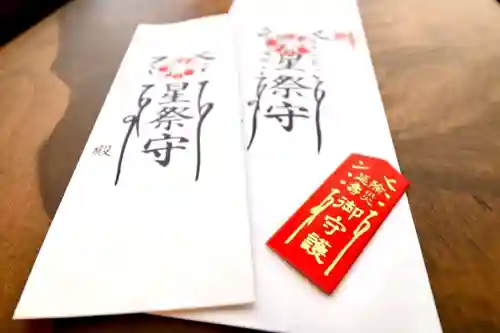 星祭守
殿
星祭守
除災
延壽
御守護